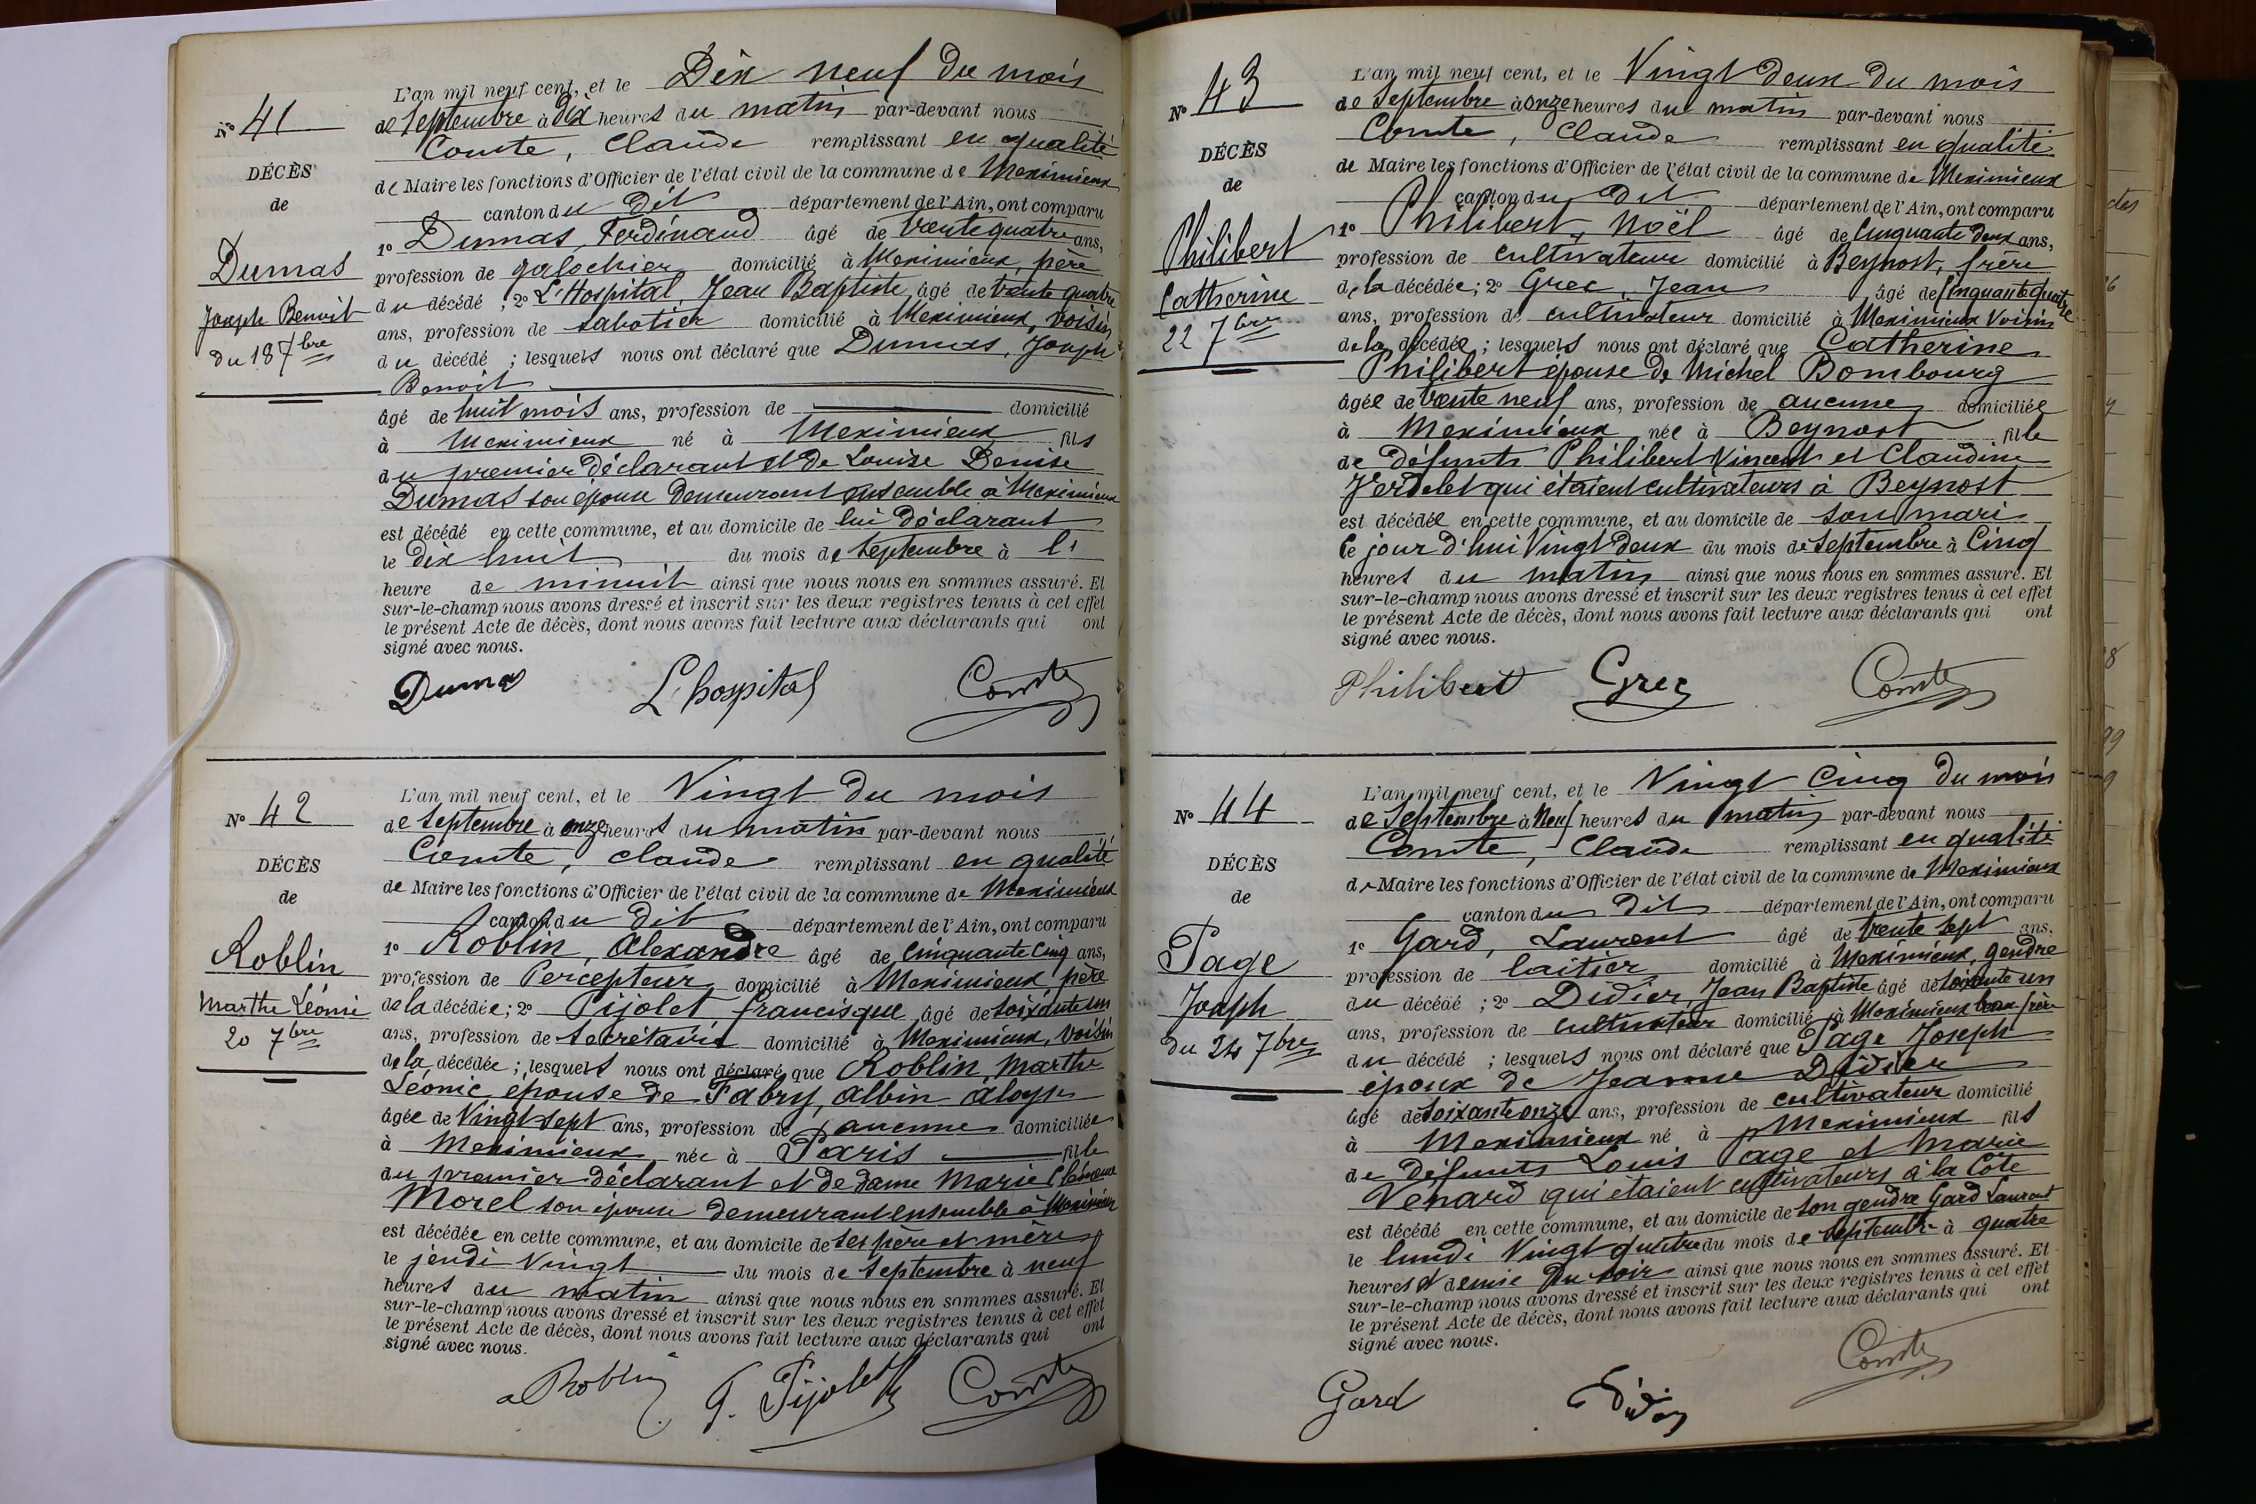 N° 41
DÉCÈS
de
Dumas
Joseph Benoit
du 18 7bre
L'an mil neuf cent, et le Dix neuf du mois
de Septembre à Dix heures du matin par-devant nous
Comte, Claude remplissant en qualité
de Maire les fonctions d'Officier de l'état civil de la commune de Meximieux
canton du dit département de l'Ain, ont comparu
1° Dumas, Ferdinand âgé de trente quatre ans,
profession de galochier domicilié à Meximieux, père
du décédé ; 2° L'Hospital, Jean Baptiste âgé de trente quatre
ans, profession de sabotier domicilié à Meximieux, voisin
du décédé ; lesquels nous ont déclaré que Dumas, Joseph
Benoit
âgé de huit mois ans, profession de domicilié
à Meximieux né à Meximieux fils
du premier déclarant et de Louise Denise
Dumas son épouse demeurant ensemble à Meximieux
est décédé en cette commune, et au domicile de lui déclarant
le dix huit du mois de septembre à l'
heure de minuit ainsi que nous nous en sommes assuré. Et
sur-le-champ nous avons dressé et inscrit sur les deux registres tenus à cet effet
le présent Acte de décès, dont nous avons fait lecture aux déclarants qui ont
signé avec nous.
Dumas L'hospital Comte
N° 42
DÉCÈS
de
Roblin
Marthe Léonie
20 7bre
L'an mil neuf cent, et le Vingt du mois
de septembre à onze heures du matin par-devant nous
Comte, Claude remplissant en qualité
de Maire les fonctions d'Officier de l'état civil de la commune de Meximieux
canton du dit département de l'Ain, ont comparu
1° Roblin, Alexandre âgé de cinquante cinq ans,
profession de Percepteur domicilié à Meximieux, père
de la décédée ; 2° Pijolet francisque âgé de soixante un
ans, profession de secrétaire domicilié à Meximieux, voisin
de la décédée ; lesquels nous ont déclaré que Roblin, Marthe
Léonie, épouse de Fabry, Albin Aloyse
âgée de Vingt sept ans, profession de aucune domiciliée
à Meximieux née à Paris fille
du premier déclarant et de dame Marie Clémence
Morel son épouse demeurant ensemble à Meximieux
est décédée en cette commune, et au domicile de ses père et mère
le jeudi Vingt du mois de septembre à neuf
heures du matin ainsi que nous nous en sommes assuré. Et
sur-le-champ nous avons dressé et inscrit sur les deux registres tenus à cet effet
le présent Acte de décès, dont nous avons fait lecture aux déclarants qui ont
signé avec nous.
a Roblin F. Pijolet Comte
N° 43
DÉCÈS
de
Philibert
Catherine
22 7bre
L'an mil neuf cent, et le Vingt deux du mois
de Septembre à onze heures du matin par-devant nous
Comte, Claude remplissant en qualité
de Maire les fonctions d'Officier de l'état civil de la commune de Meximieux
canton du dit département de l'Ain, ont comparu
1° Philibert, Noël âgé de Cinquante deux ans,
profession de cultivateur domicilié à Beynost, frère
de la décédée ; 2° Grec, Jean âgé de Cinquante quatre
ans, profession de cultivateur domicilié à Meximieux Voisin
de la décédée ; lesquels nous ont déclaré que Catherine
Philibert épouse de Michel Bombourg
âgée de trente neuf ans, profession de aucune domiciliée
à Meximieux née à Beynost fille
de défunts Philibert Vincent et Claudine
Verdelet qui étaient cultivateurs à Beynost
est décédée en cette commune, et au domicile de son mari
ce jour d'hui Vingt deux du mois de septembre à Cinq
heures du matin ainsi que nous nous en sommes assuré. Et
sur-le-champ nous avons dressé et inscrit sur les deux registres tenus à cet effet
le présent Acte de décès, dont nous avons fait lecture aux déclarants qui ont
signé avec nous.
Philibert Grec Comte
N° 44
DÉCÈS
de
Page
Joseph
du 24 7bre
L'an mil neuf cent, et le Vingt Cinq du mois
de Septembre à Neuf heures du matin par-devant nous
Comte, Claude remplissant en qualité
de Maire les fonctions d'Officier de l'état civil de la commune de Meximieux
canton du dit département de l'Ain, ont comparu
1° Gard, Laurent âgé de trente sept ans,
profession de laitier domicilié à Meximieux, gendre
du décédé ; 2° Didier, Jean Baptiste âgé de soixante un
ans, profession de cultivateur domicilié à Meximieux beau-frère
du décédé ; lesquels nous ont déclaré que Page Joseph
époux de Jeanne Didier
âgé de soixante onze ans, profession de cultivateur domicilié
à Meximieux né à Meximieux fils
de défunts Louis Page et Marie
Venard qui étaient cultivateurs à la Côte
est décédé en cette commune, et au domicile de son gendre Gard Laurent
le lundi Vingt quatre du mois de septembre à quatre
heures et demie du soir ainsi que nous nous en sommes assuré. Et
sur-le-champ nous avons dressé et inscrit sur les deux registres tenus à cet effet
le présent Acte de décès, dont nous avons fait lecture aux déclarants qui ont
signé avec nous.
Gard Didier Comte